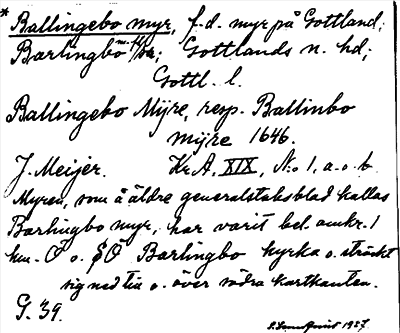 * Ballingebo myr, f.d. myr på Gottland;
Barlingbo m. fl. sn; Gottlands n. hd;
Gottl. l.
Ballingebo Mÿre, resp. Ballinbo
mÿre 1646.
J. Meijer. Kr.A. XIX, N:o 1, a. o. b.
Myren, som å äldre generalstabsblad kallas
Barlingbo myr, har varit bel. omkr. 1
km. Ö o. SÖ Barlingbo kyrka o. sträckt
sig ned till o. över södra kartkanten.
G. 39.
1927.